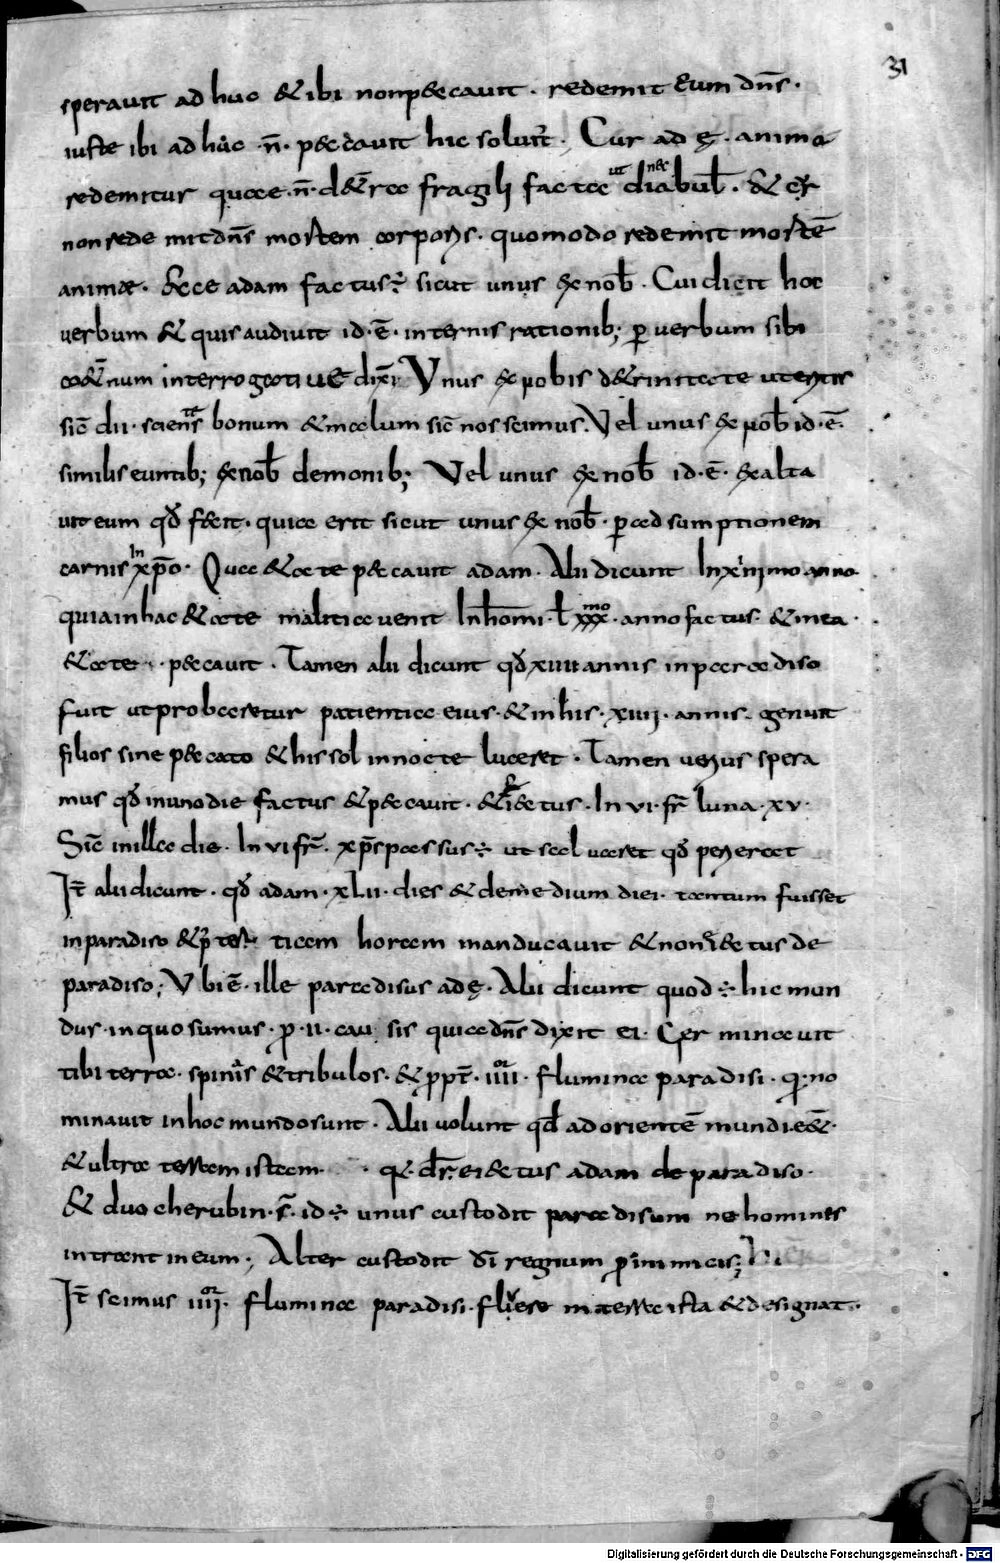 31
speravit ad huc & ibi nonp&cavit · redemit eum dn̄s ·
iuste ibi ad huc ·n̄· p&cavit hic solvit̄ · Cur ad ę · anima
redemitur quae ·n̄· d&̄rae fragili factae ut diabul̄ · &
non rede mit dn̄s mortem corporis · quomodo redemit mortē
animae · Ecce adam factus ÷ sicut unus ex nob̄ · Cui dicit hoc
verbum & quis audivit id · ē · internis rationib; ꝑ verbum sibi
co&̄num interrogativę dix̄ Unus ex nobis
sic̄ dii · scientes bonum & malum sic̄ nos scimus · Vel unus ex nob̄ id · ē ·
similis euntib; ex nob̄ demonib; Vel unus ex nob̄ id · ē · exalta
vit eum qd̄ fecit · quia erit sicut unus ex nob̄ · ꝑ adsumptionem
carnis in xp̄o · Qua &ate p&cavit adam · Alii dicunt In anno
quia in hac &ate malitia venit In hom̄i · ł xxx mo · anno factus · & in ea ·
&ate · p&cavit · Tamen alii dicunt qd̄ xiiii annis in paradiso
fuit ut probaretur patientia eius · & in his · xiiii · annis · genuit
filios sine p&cato & his sol in nocte luceret · Tamen verius spera
mus qd̄ in uno die factus & p&cavit · & ei&ctus · In vi · fr̄ luna · xv ·
Sic̄ in illa die · In vi fr̄ · xp̄s passus ÷ ut salvaret qd̄ perierat
It̄ alii dicunt · qd̄ adam · xlii · dies & demedium diei · tantum fuisset
in paradiso & ticam horam manducavit & non ei&tus de
paradiso; Ubi ē · ille paradisus ad ę · Alii dicunt quod ÷ hic mun
dus · in quo sumus · ꝓ · ii · cau sis quia dn̄s dixit ei · Ger minavit
tibi terra · spinas & tribulos · & ꝓpt̄ · iiii or · flumina paradisi · q · no
minavit in hoc mundo sunt · Alii volunt qd̄ ad orientē mundi
& ultra terram istam · q · dr̄ · ei&tus adam de paradiso ·
& duo cherubin · s̄ · id ÷ unus custodit paradisum ne homines
intrant in eum; Alter custodit dī regnum ꝓ inimicis;
It̄ scimus iiii or · flumina paradisi · fluere in terra ista & designat ·
Digitalisierung gefördert durch die Deutsche Forschungsgemeinschaft - DFG